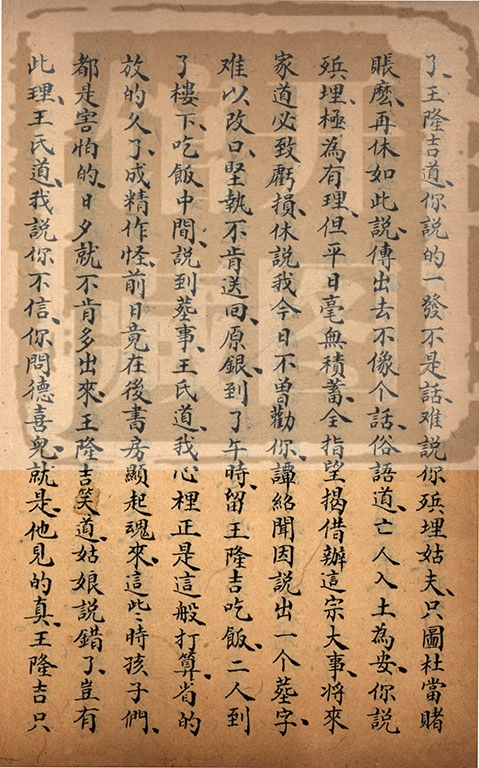 了、王隆吉道、你說的一發不是話、难說你殡埋姑夫、只圖杜當賭
賬麽、再休如此說、傳出去不像个話、俗語道、亡人入土為安、你說
殡埋、極為有理、但平日毫無積蓄、全指望揭借辦這宗大事、將來
家道必致虧損、休說我今日不曾勸你、譚紹聞因說出一个墓字、
难以改口、堅執不肯送回原銀、到了午時、留王隆吉吃飯、二人到
了樓下、吃飯中間、說到墓事、王氏道、我心裡正是這般打算、省的
放的久了、成精作怪、前日竟在後書房顯起魂來、這些時孩子們、
都是害怕的、日夕就不肯多出來、王隆吉笑道、姑娘說錯了、豈有
此理、王氏道、我說你不信、你問德喜兒、就是他見的真、王隆吉只